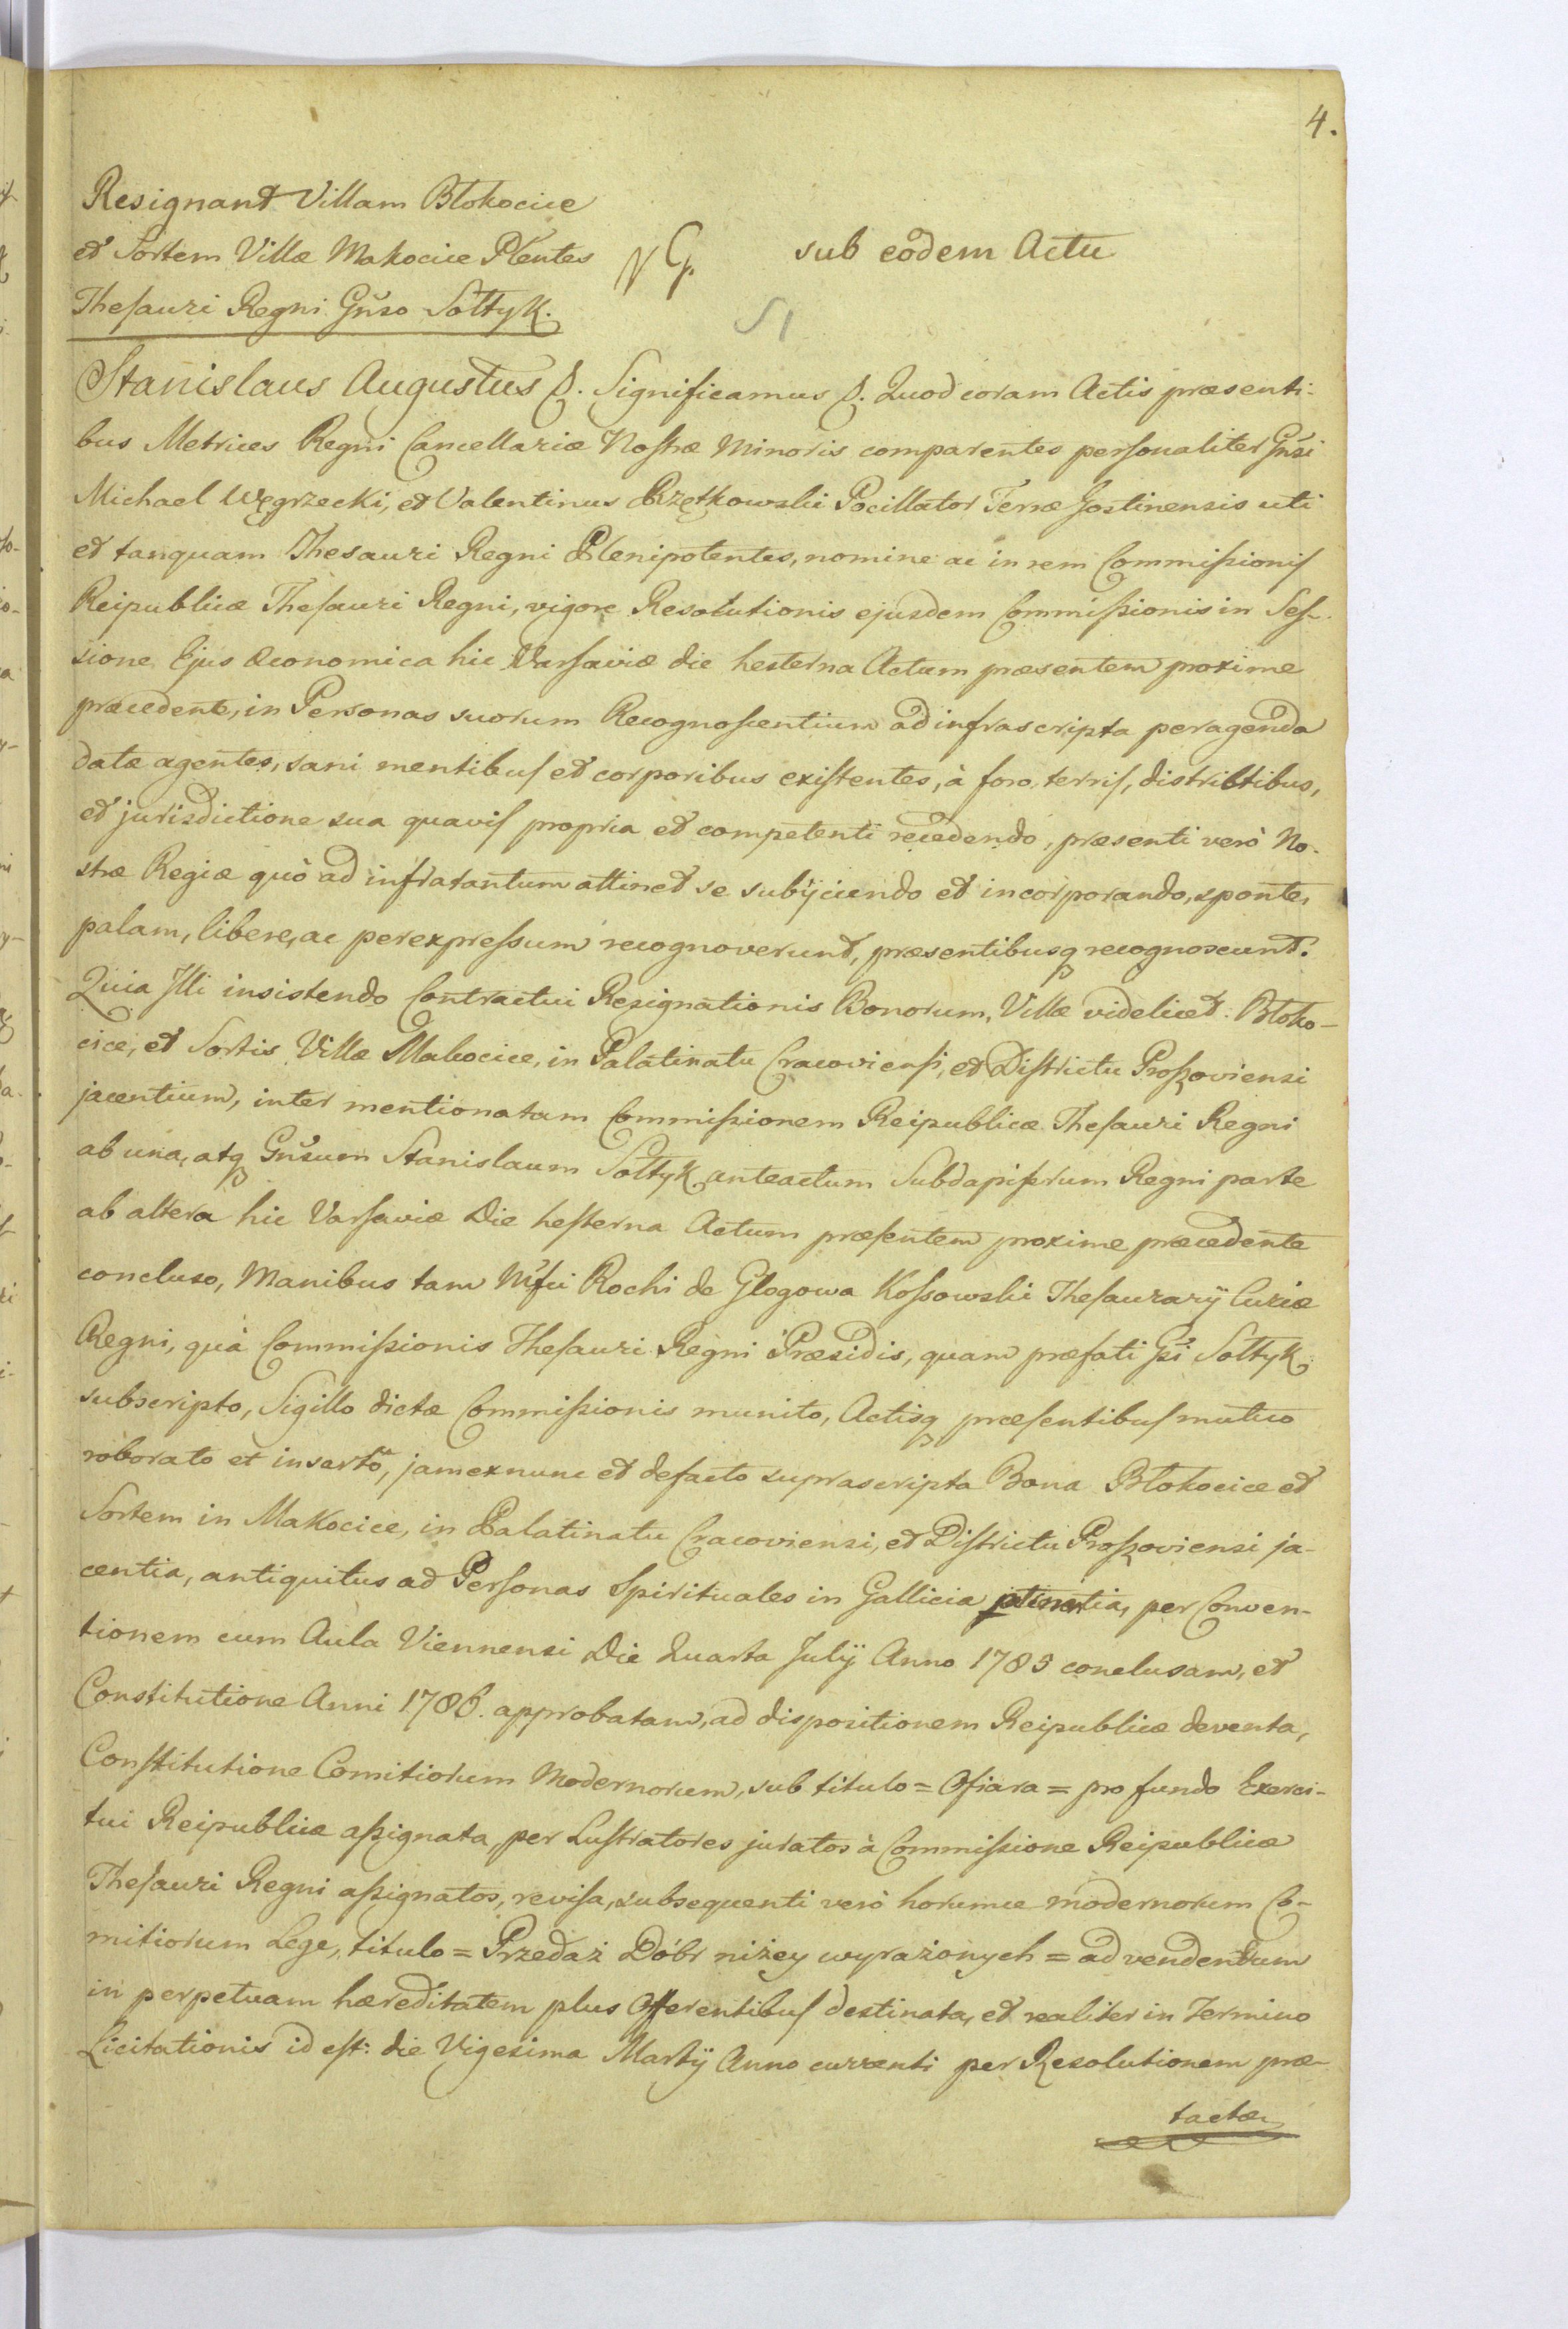 4.
Resignant Villam Błokocice
et Sortem Villæ Makocice Plentes
Thesauri Regni Gn̄so Sołtyk.
sub eodem Actu
Stanislaus Augustus &. Significamus &. Quod coram Actis præsenti-
bus Metrices Regni Cancellariæ Nostræ Minoris comparentes personaliter Gn̄si
Michael Węgrzecki, et Valentinus Rzętkowski Pocillator Terræ Gostinensis uti
et tanquam Thesauri Regni Plenipotentes, nomine ac in rem Commissionis
Reipublicæ Thesauri Regni, vigore Resolutionis ejusdem Commissionis in Ses-
sione Ejus Œconomica hic Varsaviæ die hesterna Actum præsentem proxime
præcedente, in Personas suorum Recognoscentium ad infrascripta peragenda
datæ agentes, sani mentibus et corporibus existentes, à foro, terris, districtibus,
et jurisdictione sua quavis propria et competenti recedendo, præsenti verò No-
stræ Regiæ quò ad infratantum attinet se subÿciendo et incorporando, sponte,
palam, libere, ac per expressum recognoverunt, præsentibusq recognoscunt.
Quia Illi insistendo Contractui Resignationis Bonorum, Villæ videlicet: Błoko-
cice, et Sortis Villæ Makocice, in Palatinatu Cracoviensi, et Districtu Proszoviensi
jacentium, inter mentionatam Commissionem Reipublicæ Thesauri Regni
ab una, atq Gn̄sum Stanislaum Sołtyk anteactum Subdapiferum Regni parte
ab altera hic Varsaviæ Die hesterna Actum præsentem proxime præcedente
concluso, Manibus tam Mfci Rochi de Głogowa Kossowski Thesaurarÿ Curiæ
Regni, quà Commissionis Thesauri Regni Præsidis, quam præfati Gsi Sołtyk
subscripto, Sigillo dictæ Commissionis munito, Actisq præsentibus mutuo
roborato et inserto, jam ex nunc et defacto suprascripta Bona Błokocice et
Sortem in Makocice, in Palatinatu Cracoviensi, et Districtu Proszoviensi ja-
centia, antiquitus ad Personas Spirituales in Gallicia ptinentia, per Conven-
tionem cum Aula Viennensi Die Quarta Julÿ Anno 1785 conclusam, et
Constitutione Anni 1786. approbatam, ad dispositionem Reipublicæ deventa,
Constitutione Comitiorum Modernorum, sub titulo = Ofiara = pro fundo Exerci-
tui Reipublicæ assignata, per Lustratores juratos à Commissione Reipublicæ
Thesauri Regni assignatos, revisa, subsequenti verò horumce modernorum Co-
mitiorum Lege, titulo = Przedaż Dóbr niżey wyrażonych = ad vendendum
in perpetuam hæreditatem plus Offerentibus destinata, et realiter in Termino
Licitationis id est: die Vigesima Martÿ Anno currenti per Resolutionem præ-
tactæ